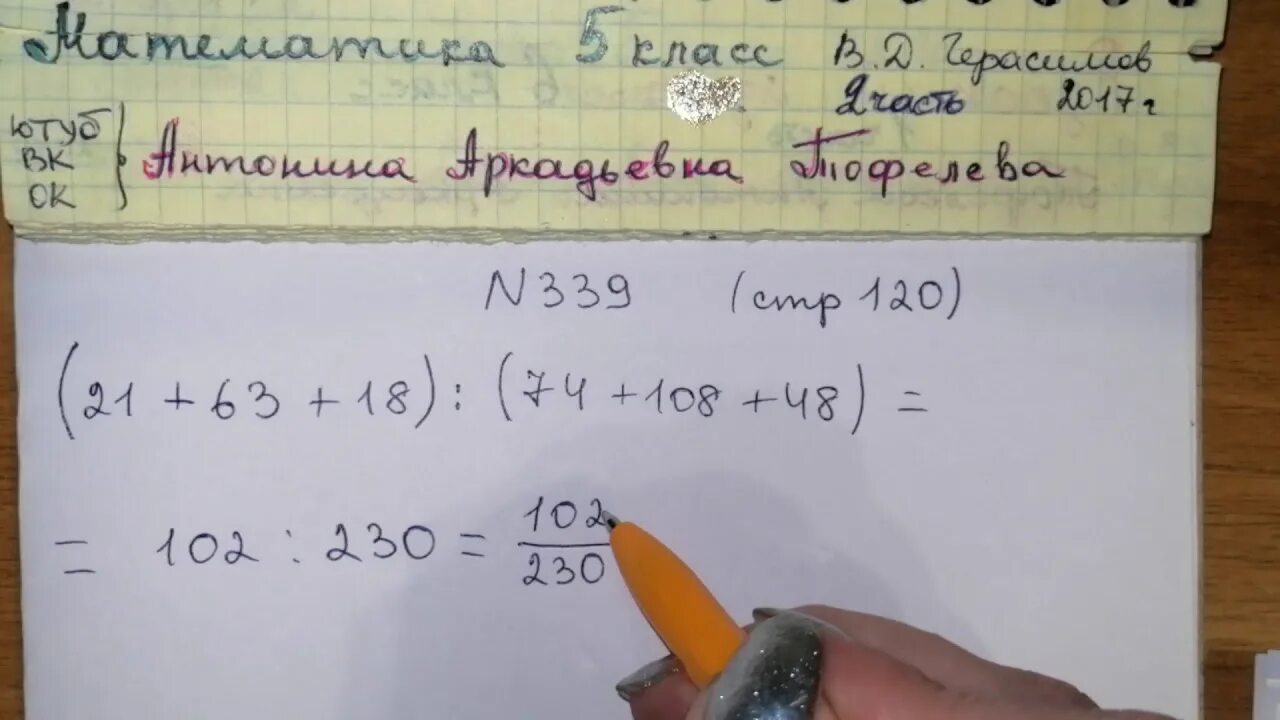 Математика 5 класс В.Д. Герасимов
2 часть 2017 г
ЮТУБ
ВК
ОК
Антонина Аркадьевна Тюфелева
N 339 (стр 120)
(21 + 63 + 18) : (74 + 108 + 48) =
= 102 : 230 = 102/230